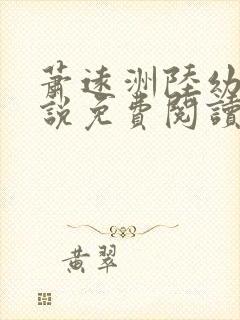 蕭遠洲陸幼
說免費閱讀
黃翠